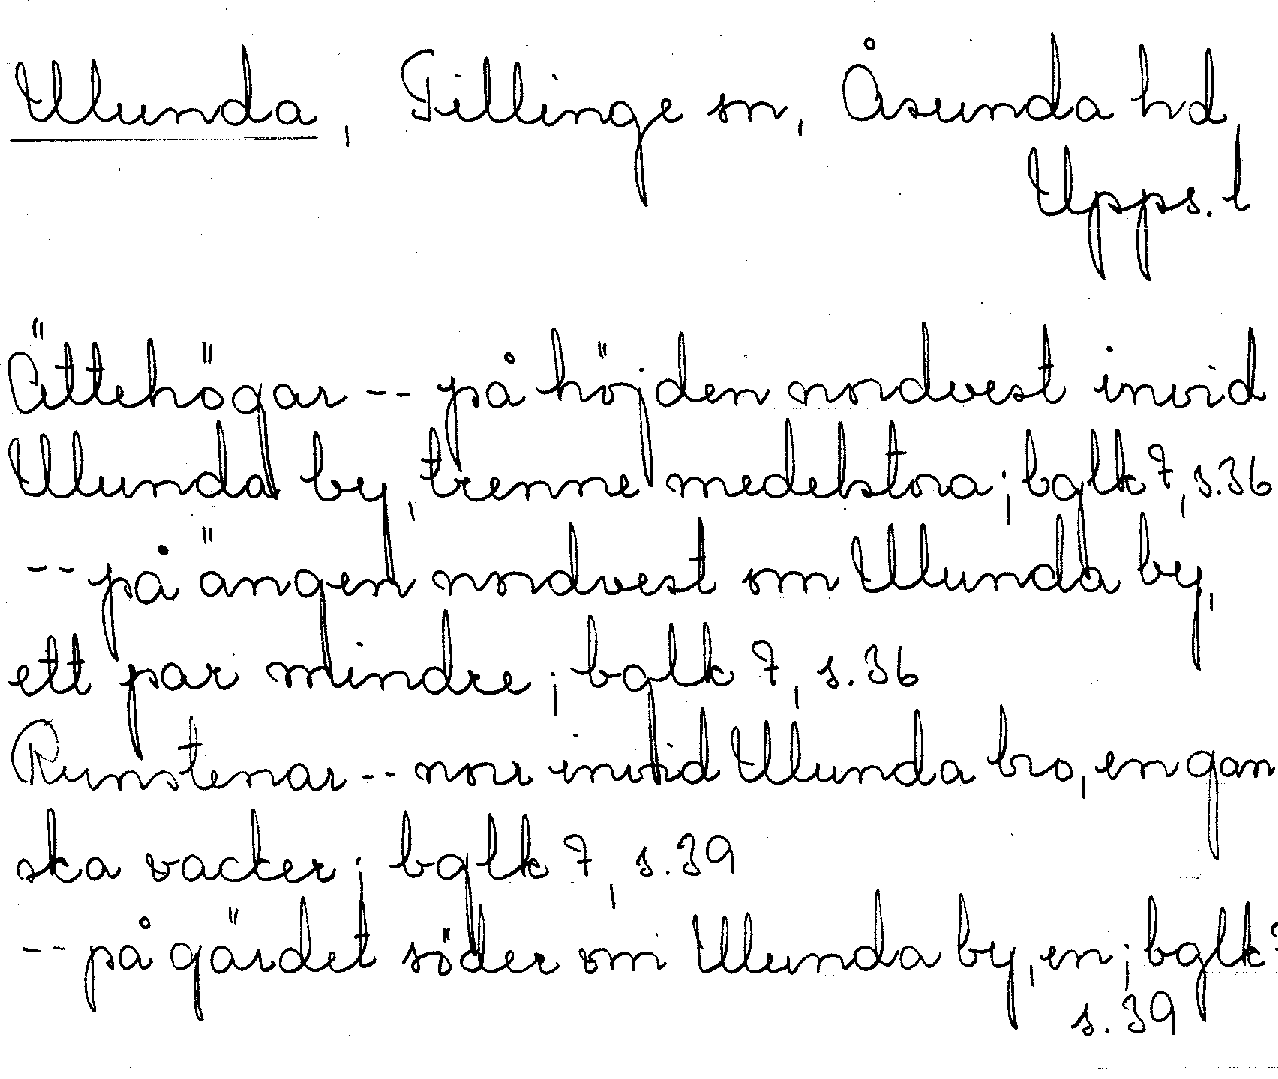 Ulunda, Tillinge sn, Åsunda hd,
Upps. l
Ättehögar -- på höjden nordvest invid
Ulunda by, trenne medelstora; bglk 7, s.36
-- på ängen nordvest om Ulunda by,
ett par mindre; bglk 7, s.36
Runstenar -- norr invid Ulunda bro, en gan
ska vacker; bglk 7, s.39
-- på gärdet söder om Ulunda by, en; bglk
s.39